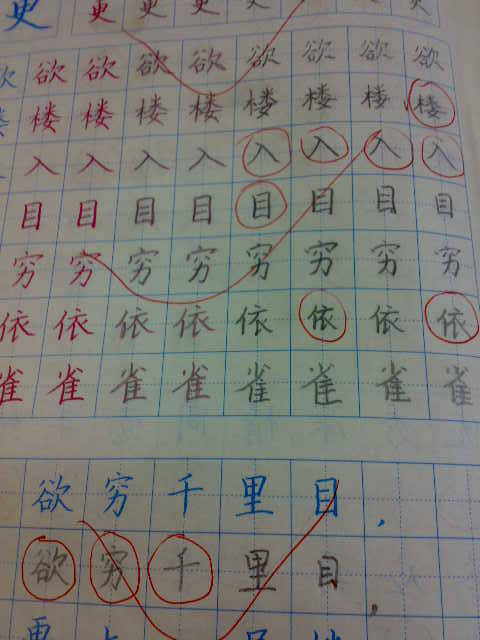 更更更更更更更更
欲欲欲欲欲欲欲欲欲
楼楼楼楼楼楼楼楼
入入入入入入入入
目目目目目目目目
穷穷穷穷穷穷穷穷
依依依依依依依依
雀雀雀雀雀雀雀雀
欲穷千里目，
欲穷千里目，
更